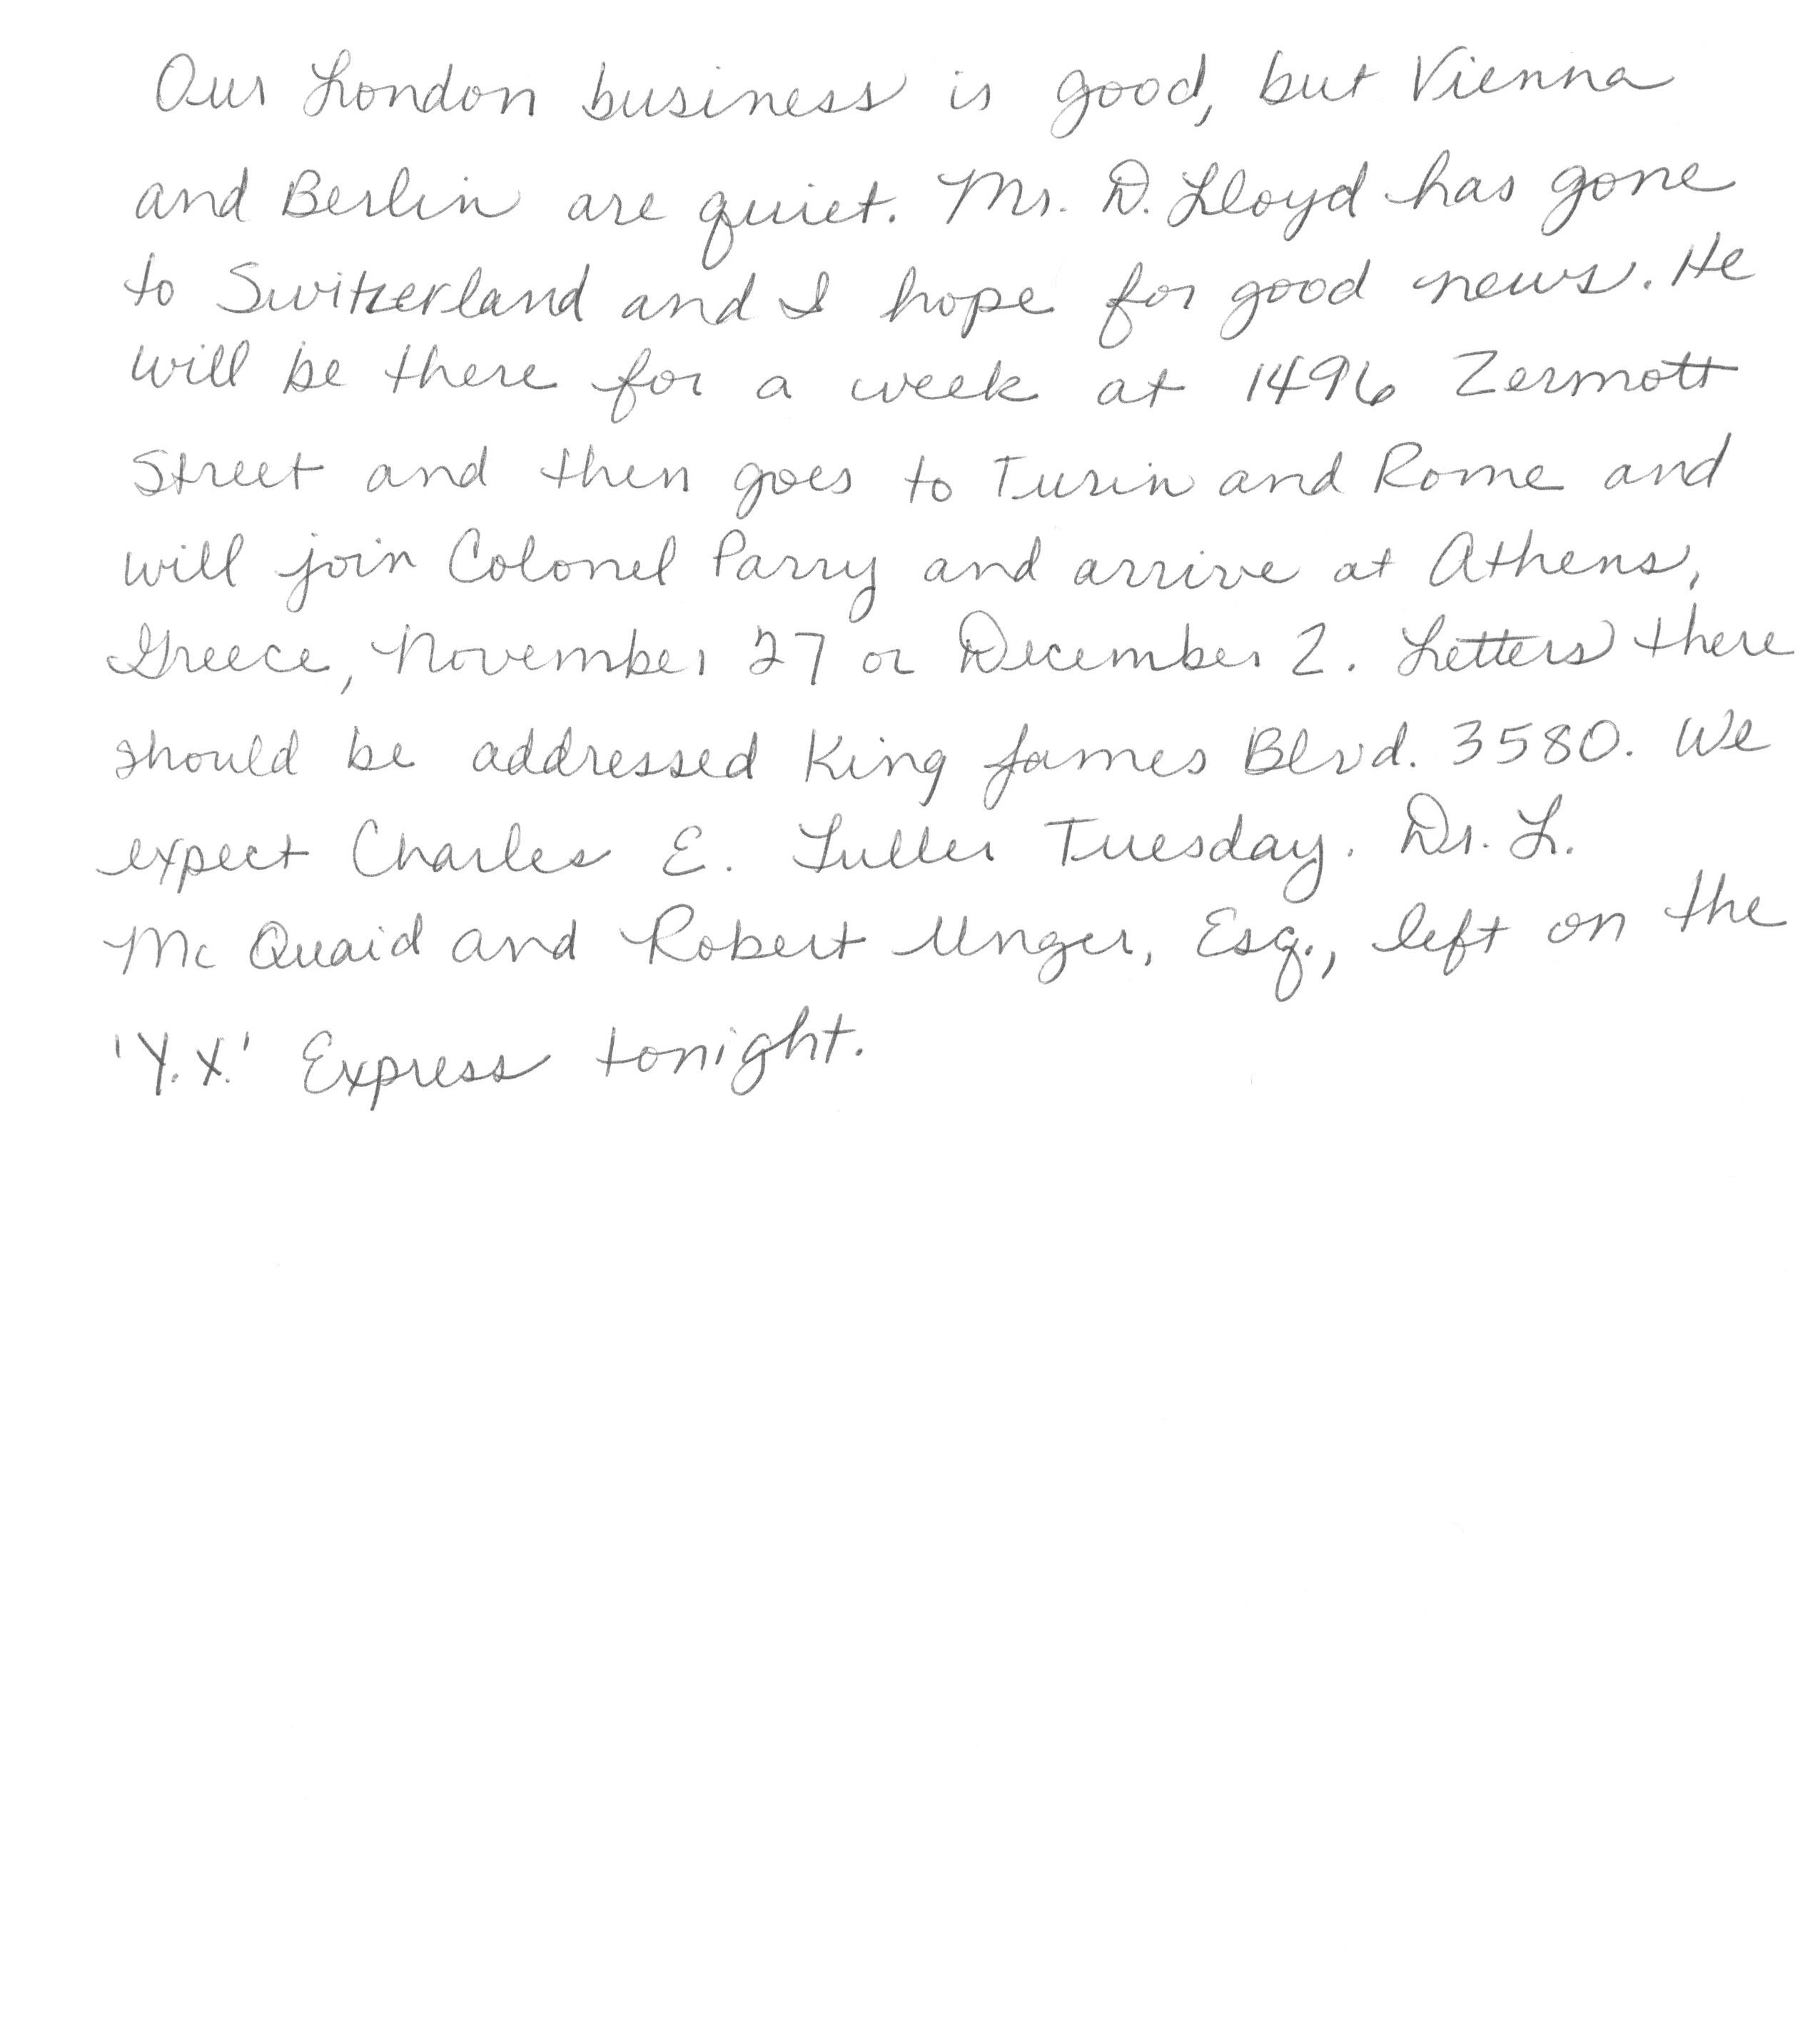 Our London business is good, but Vienna
and Berlin are quiet. Mr. D. Lloyd has gone
to Switzerland and I hope for good news. He
will be there for a week at 1496 Zermott
Street and then goes to Turin and Rome and
will join Colonel Parry and arrive at Athens,
Greece, November 27 or December 2. Letters there
should be addressed King James Blvd. 3580. We
expect Charles E. Fuller Tuesday. Dr. L.
Mc Quaid and Robert Unger, Esq., left on the
'Y.X.' Express tonight.